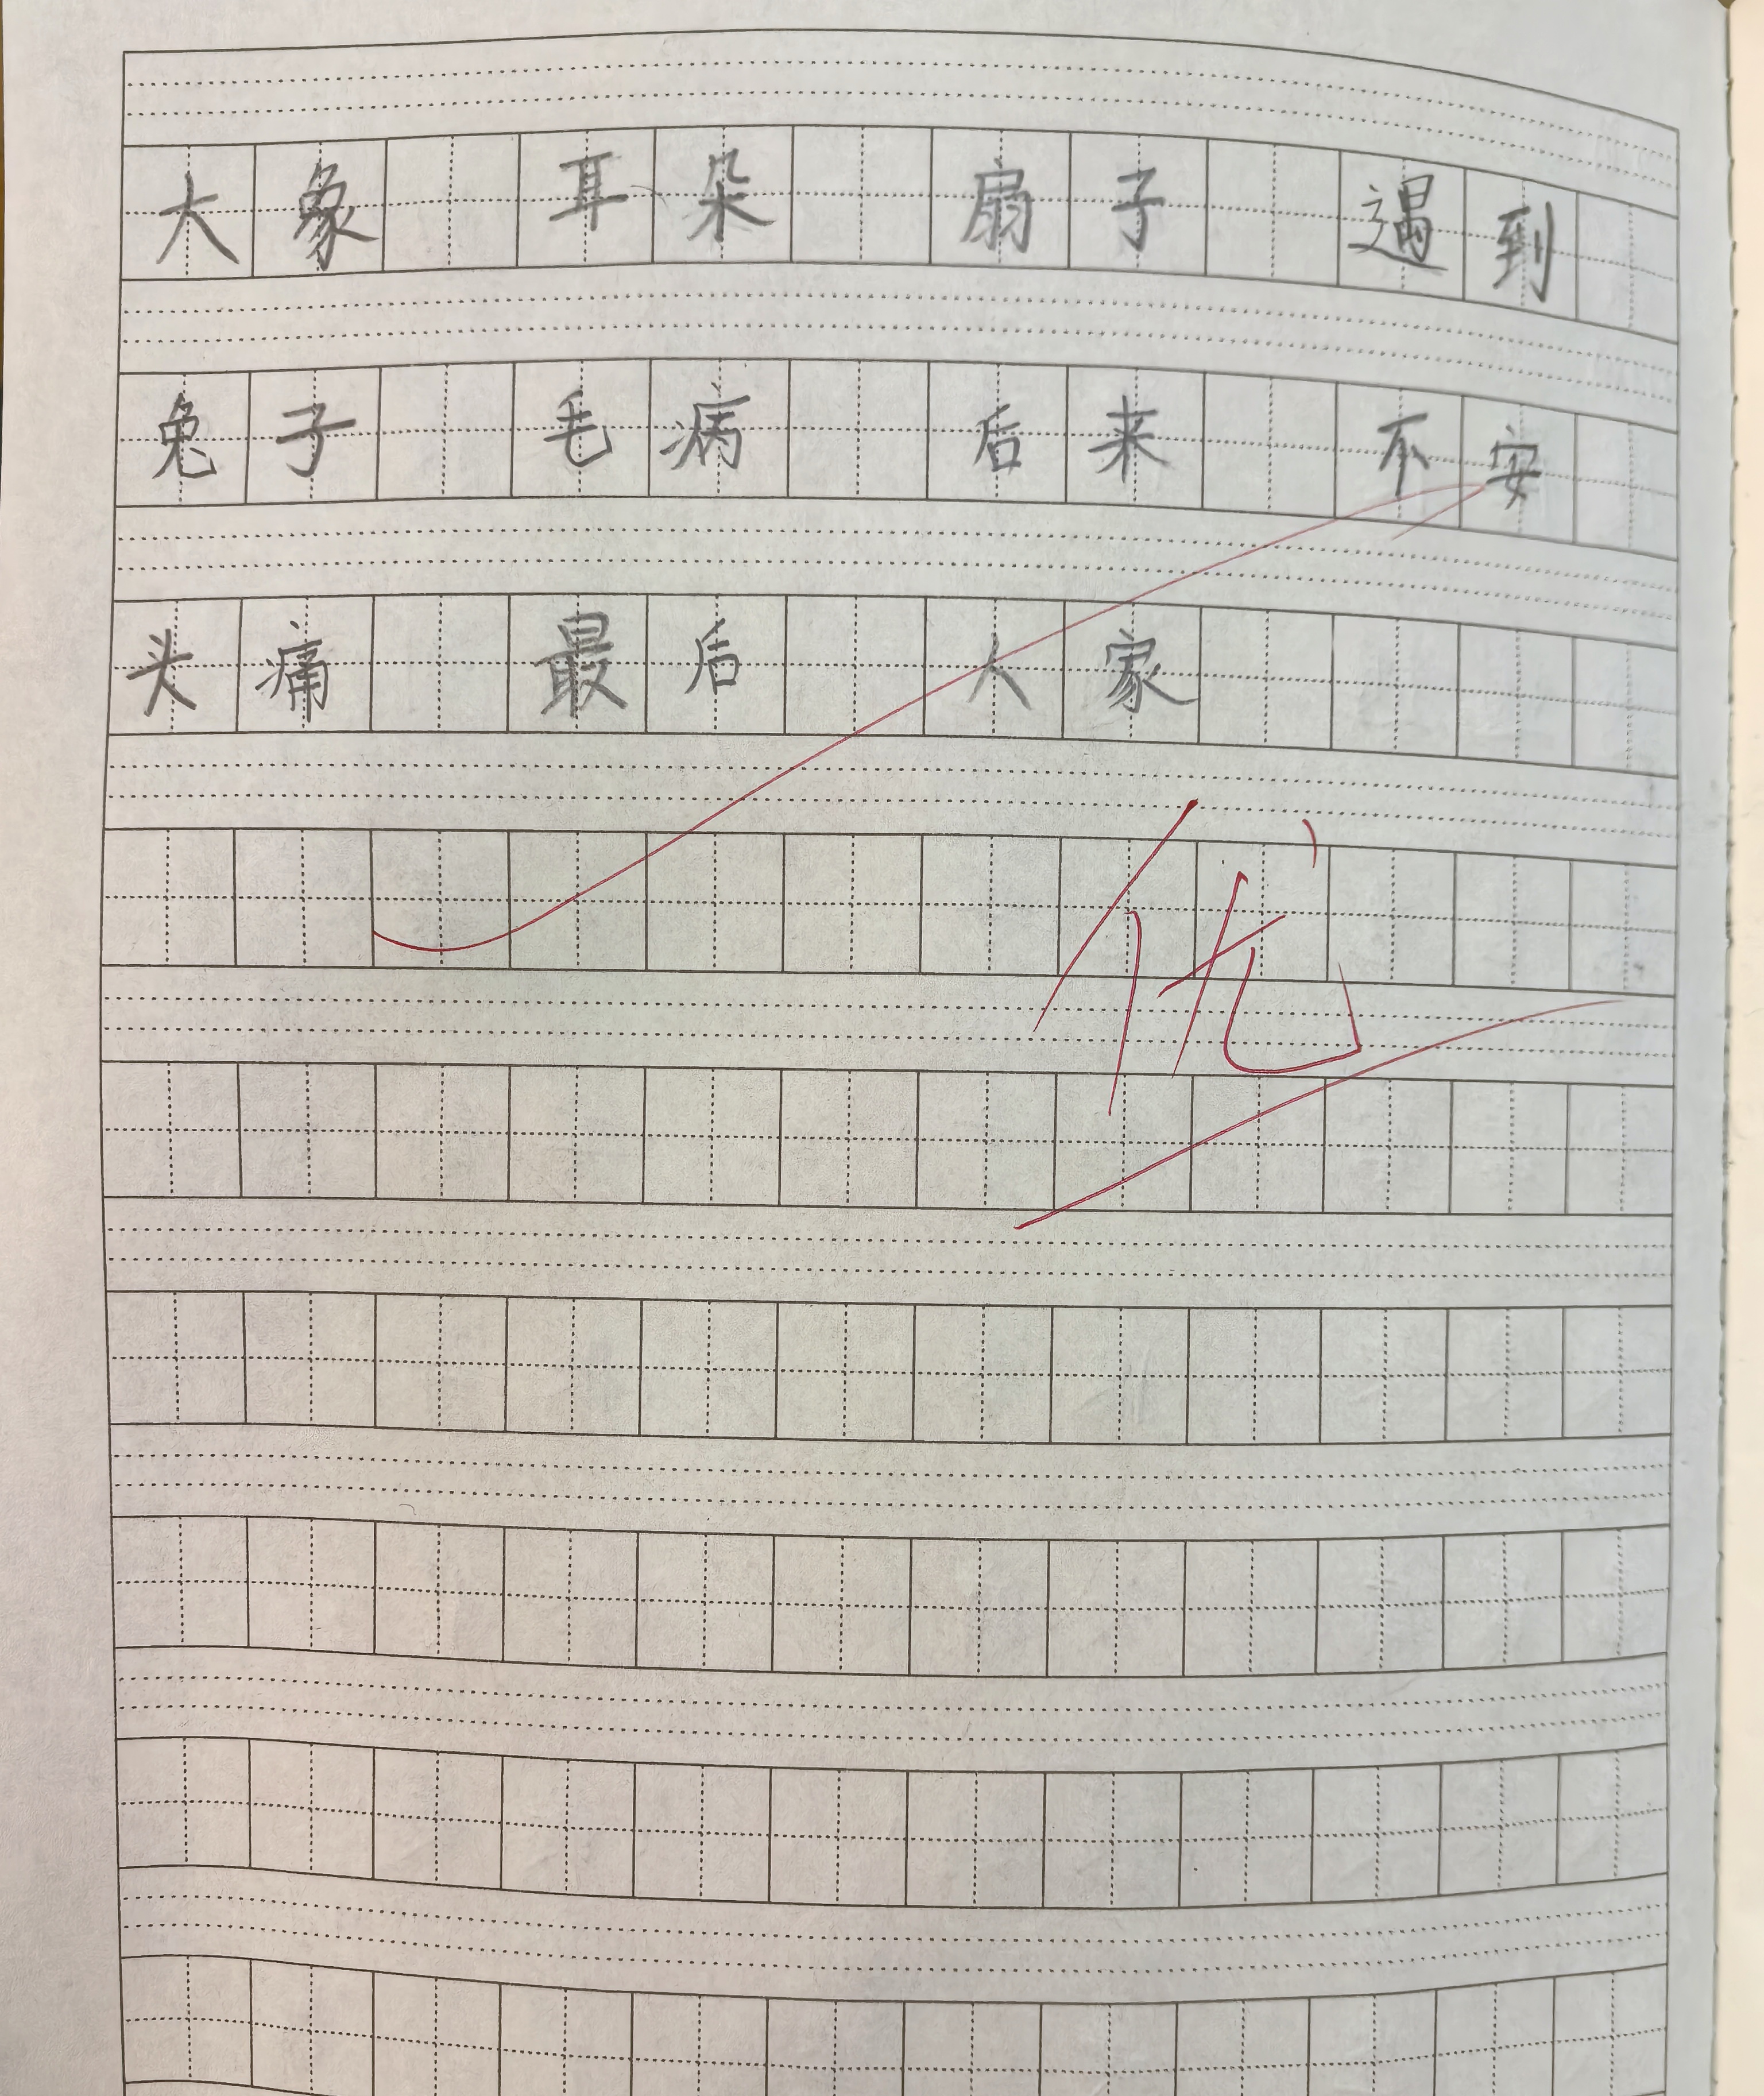 大象 耳朵 扇子 遇到
兔子 毛病 后来 不安
头痛 最后 大家
优